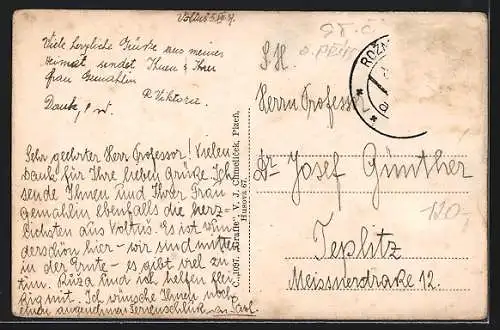 Viele herzliche Grüsse aus meiner
Heimat sendet Ihnen & Ihrer
Frau Gemahlin
R. Viktoria.
Sehr geehrter Herr Professor! Vielen
Dank für Ihre lieben Grüße. Ich
sende Ihnen und Ihrer Frau
Gemahlin ebenfalls die herz-
lichsten aus Voltuš. Es ist wun-
derschön hier - wir sind mitten
in der Ernte - es gibt viel zu
tun. Růža und ich helfen flei-
ßig mit. Ich wünsche Ihnen noch
einen angenehmen Ferienschluß
C. 1097. „Grafie“ V. J. Chmelíček, Plzeň,
Husova 67.
S. H.
Herrn Professor
Dr Josef Günther
Teplitz
Meissnerstraße 12.
ROŽM
120,-